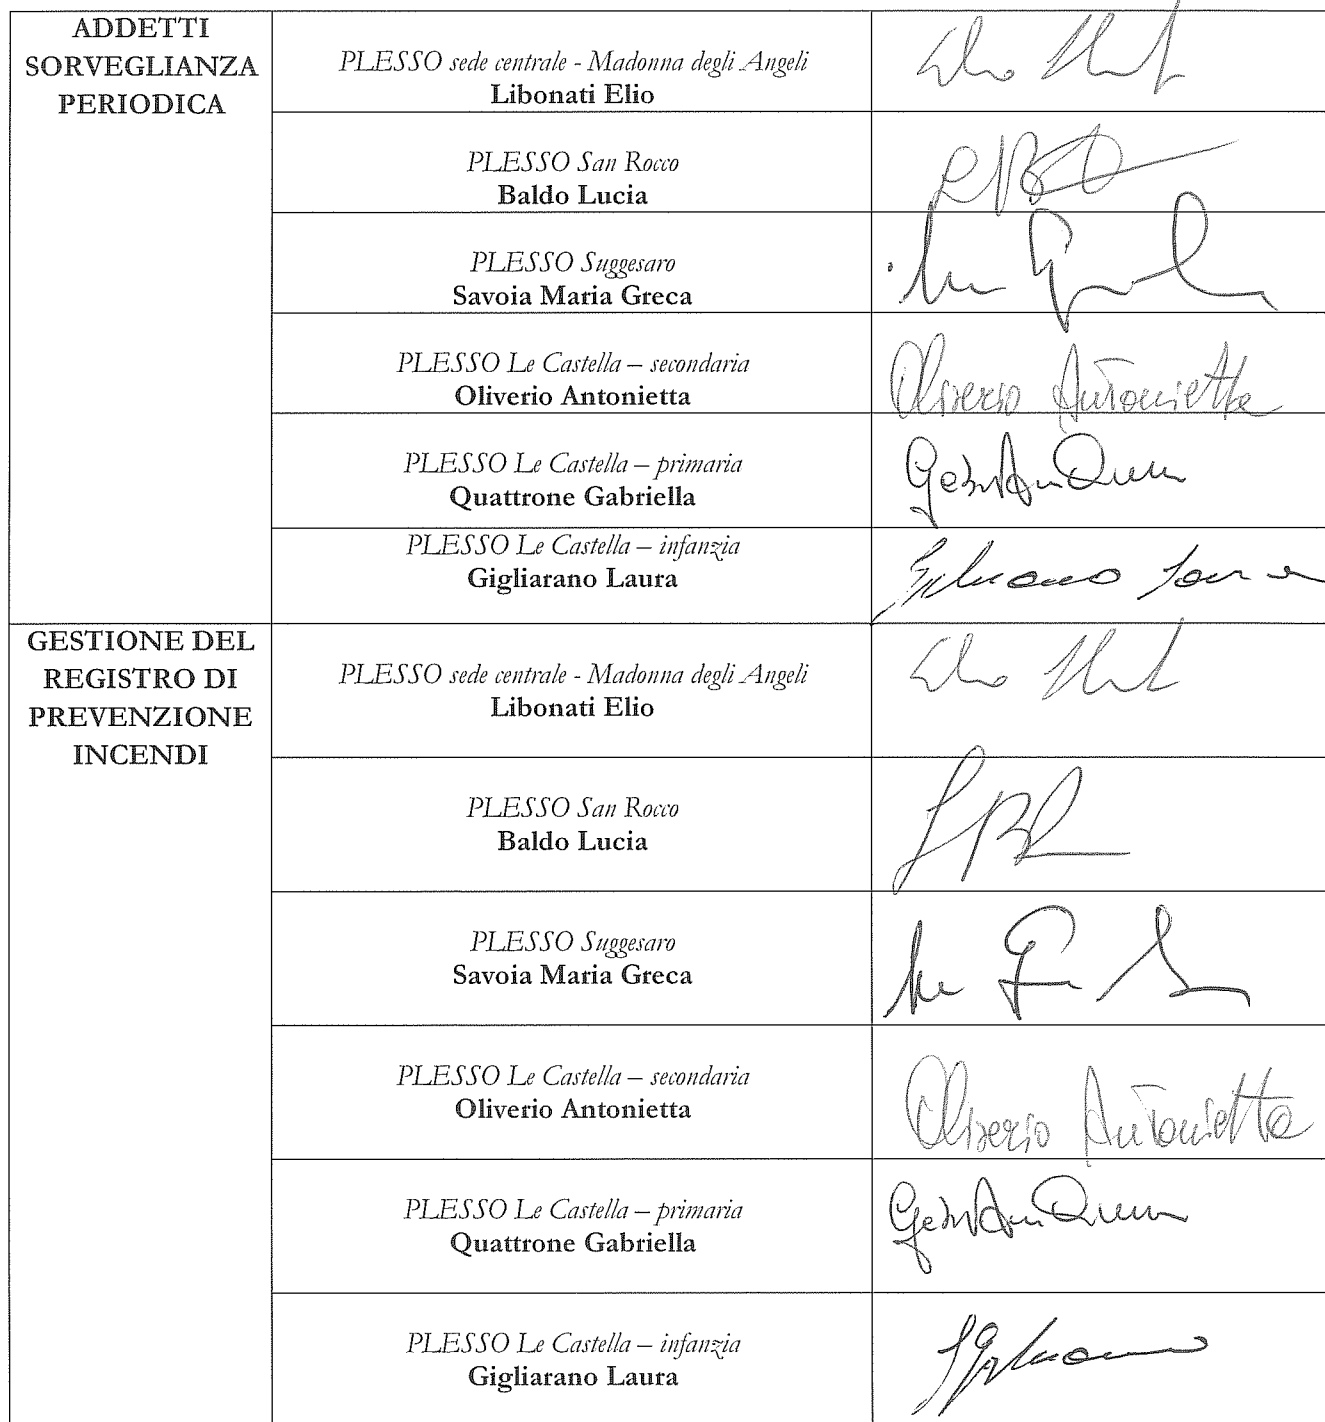 ADDETTI
SORVEGLIANZA
PERIODICA
PLESSO sede centrale - Madonna degli Angeli
Libonati Elio
PLESSO San Rocco
Baldo Lucia
PLESSO Suggesaro
Savoia Maria Greca
PLESSO Le Castella – secondaria
Oliverio Antonietta
Oliverio Antonietta
PLESSO Le Castella – primaria
Quattrone Gabriella
PLESSO Le Castella – infanzia
Gigliarano Laura
GESTIONE DEL
REGISTRO DI
PREVENZIONE
INCENDI
PLESSO sede centrale - Madonna degli Angeli
Libonati Elio
PLESSO San Rocco
Baldo Lucia
PLESSO Suggesaro
Savoia Maria Greca
PLESSO Le Castella – secondaria
Oliverio Antonietta
Oliverio Antonietta
PLESSO Le Castella – primaria
Quattrone Gabriella
PLESSO Le Castella – infanzia
Gigliarano Laura